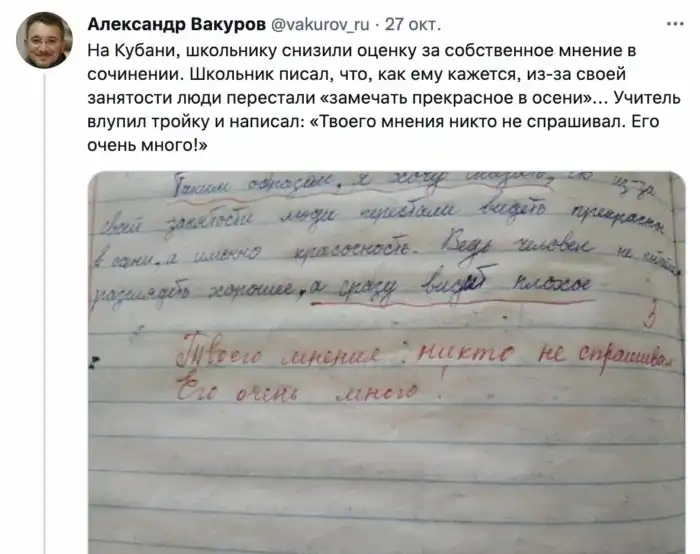 Александр Вакуров @vakurov_ru · 27 окт.
На Кубани, школьнику снизили оценку за собственное мнение в
сочинении. Школьник писал, что, как ему кажется, из-за своей
занятости люди перестали «замечать прекрасное в осени»... Учитель
влупил тройку и написал: «Твоего мнения никто не спрашивал. Его
очень много!»
Таким образом, я хочу сказать, из-за
своей занятости люди перестали видеть прекрасн
в а именно красочность. Ведь человек не
разглядеть хорошее, а сразу видит плохое
3
Твоего мнения никто не спрашивал
Его очень много!